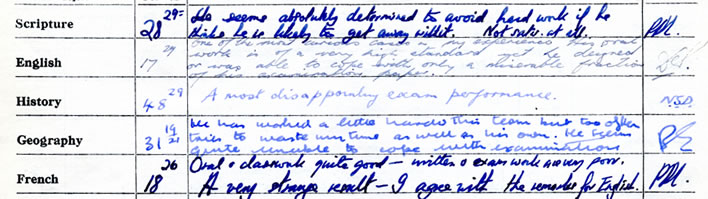 Scripture 28 29= He seems absolutely determined to avoid hard work if he
thinks he is likely to get away with it. Not satis. at all. PDL.
English 17 29 One of the most curious cases in my experience. His oral
work is of a very high standard yet he deigned
or was able to cope with only a miserable fraction
of his examination paper.
History 48 29 A most disappointing exam performance. NSD.
Geography 31 19 21 He has worked a little harder this term but too often
tries to waste my time as well as his own. He seems
quite unable to cope with examinations
French 18 26 Oral & classwork quite good — written & exam work very poor.
A very strange result — I agree with the remarks for English. PDL.